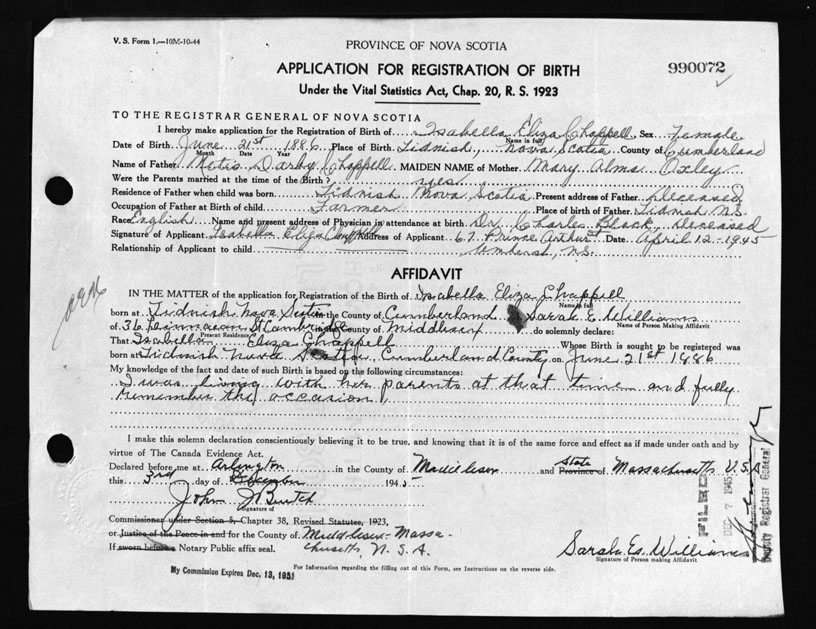 V. S. Form 1.—10M-10-44
PROVINCE OF NOVA SCOTIA
APPLICATION FOR REGISTRATION OF BIRTH
990072
Under the Vital Statistics Act, Chap. 20, R. S. 1923
TO THE REGISTRAR GENERAL OF NOVA SCOTIA
I hereby make application for the Registration of Birth of Isabella Eliza Chappell Sex Female
Name in full
Date of Birth June 21st 1886 Place of Birth Tidnish, Nova Scotia County of Cumberland
Month Date Year
Name of Father Darby Chappell MAIDEN NAME of Mother Mary Alma Oxley
Were the Parents married at the time of the Birth? yes
Residence of Father when child was born Tidnish Nova Scotia Present address of Father Deceased
Occupation of Father at Birth of child Farmer Place of birth of Father Tidnish N.S.
Race English Name and present address of Physician in attendance at birth Dr. Charles Black, Deceased
Signature of Applicant Isabella Eliza Chappell Address of Applicant 67 Prince Arthur St Date April 12-1945
Relationship of Applicant to child Amherst, N.S.
AFFIDAVIT
IN THE MATTER of the application for Registration of the Birth of Isabella Eliza Chappell
Name in full
born at Tidnish Nova Scotia in the County of Cumberland I Sarah E. Williams
Name of Person Making Affidavit
of 36 St Cambridge in the County of Middlesex do solemnly declare:
Present Residence
That Isabella Eliza Chappell Whose Birth is sought to be registered was
born at Tidnish Nova Scotia, Cumberland County on June 21st 1886
My knowledge of the fact and date of such Birth is based on the following circumstances:
I was living with her parents at that time and fully
remember the occasion.
I make this solemn declaration conscientiously believing it to be true, and knowing that it is of the same force and effect as if made under oath and by
virtue of The Canada Evidence Act.
Declared before me at Arlington in the County of Middlesex and State Province of Massachusetts U.S.A
this 3rd day of December 1945
John J Burtch
Signature of
Commissioner under Section 5, Chapter 38, Revised Statutes, 1923,
or Justice of the Peace in and for the County of Middlesex Massa-
If sworn before a Notary Public affix seal. chusetts, U.S.A.
Sarah E. Williams
Signature of Person making Affidavit
FILED
DEC 7 1945
Deputy Registrar General
My Commission Expires Dec. 13, 1951
For Information regarding the filling out of this Form, see Instructions on the reverse side.